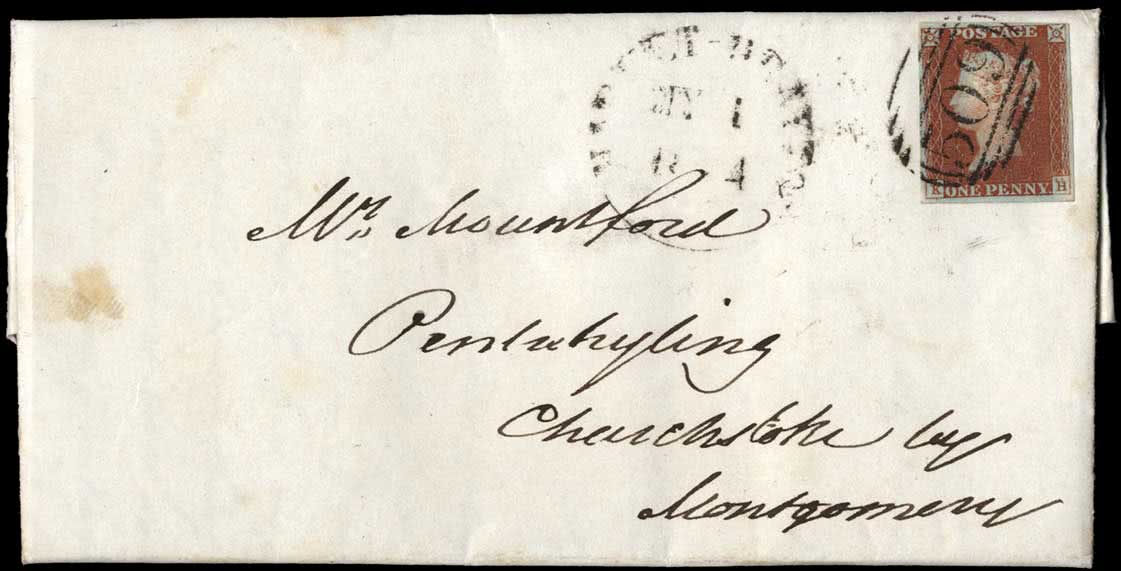 POSTAGE
509
K ONE PENNY H
MY 1
Mr. Mountford
Pentrehyling
Churchstoke by
Montgomery